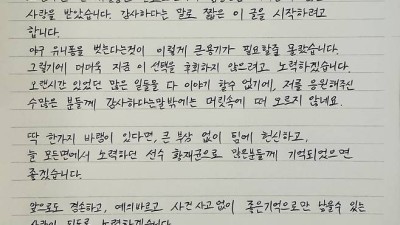 사랑을 받았습니다. 감사하다는 말로 짧은 이 글을 시작하려고
합니다.
야구 유니폼을 벗는다는것이 이렇게 큰용기가 필요할줄 몰랐습니다.
그렇기에 더더욱 지금 이 선택을 후회하지 않으려고 노력하겠습니다.
오랜시간 있었던 많은 일들을 다 이야기 할수 없기에, 저를 응원해주신
수많은 분들께 감사하다는말밖에는 머릿속에 떠 오르지 않네요.
딱 한가지 바램이 있다면, 큰 부상 없이 팀에 헌신하고,
늘 모든면에서 노력하던 선수 황재균으로 많은분들께 기억되었으면
좋겠습니다.
앞으로도 겸손하고, 예의바르고 사건 사고 없이 좋은기억으로만 남을수 있는
사람이 되도록 노력하겠습니다.